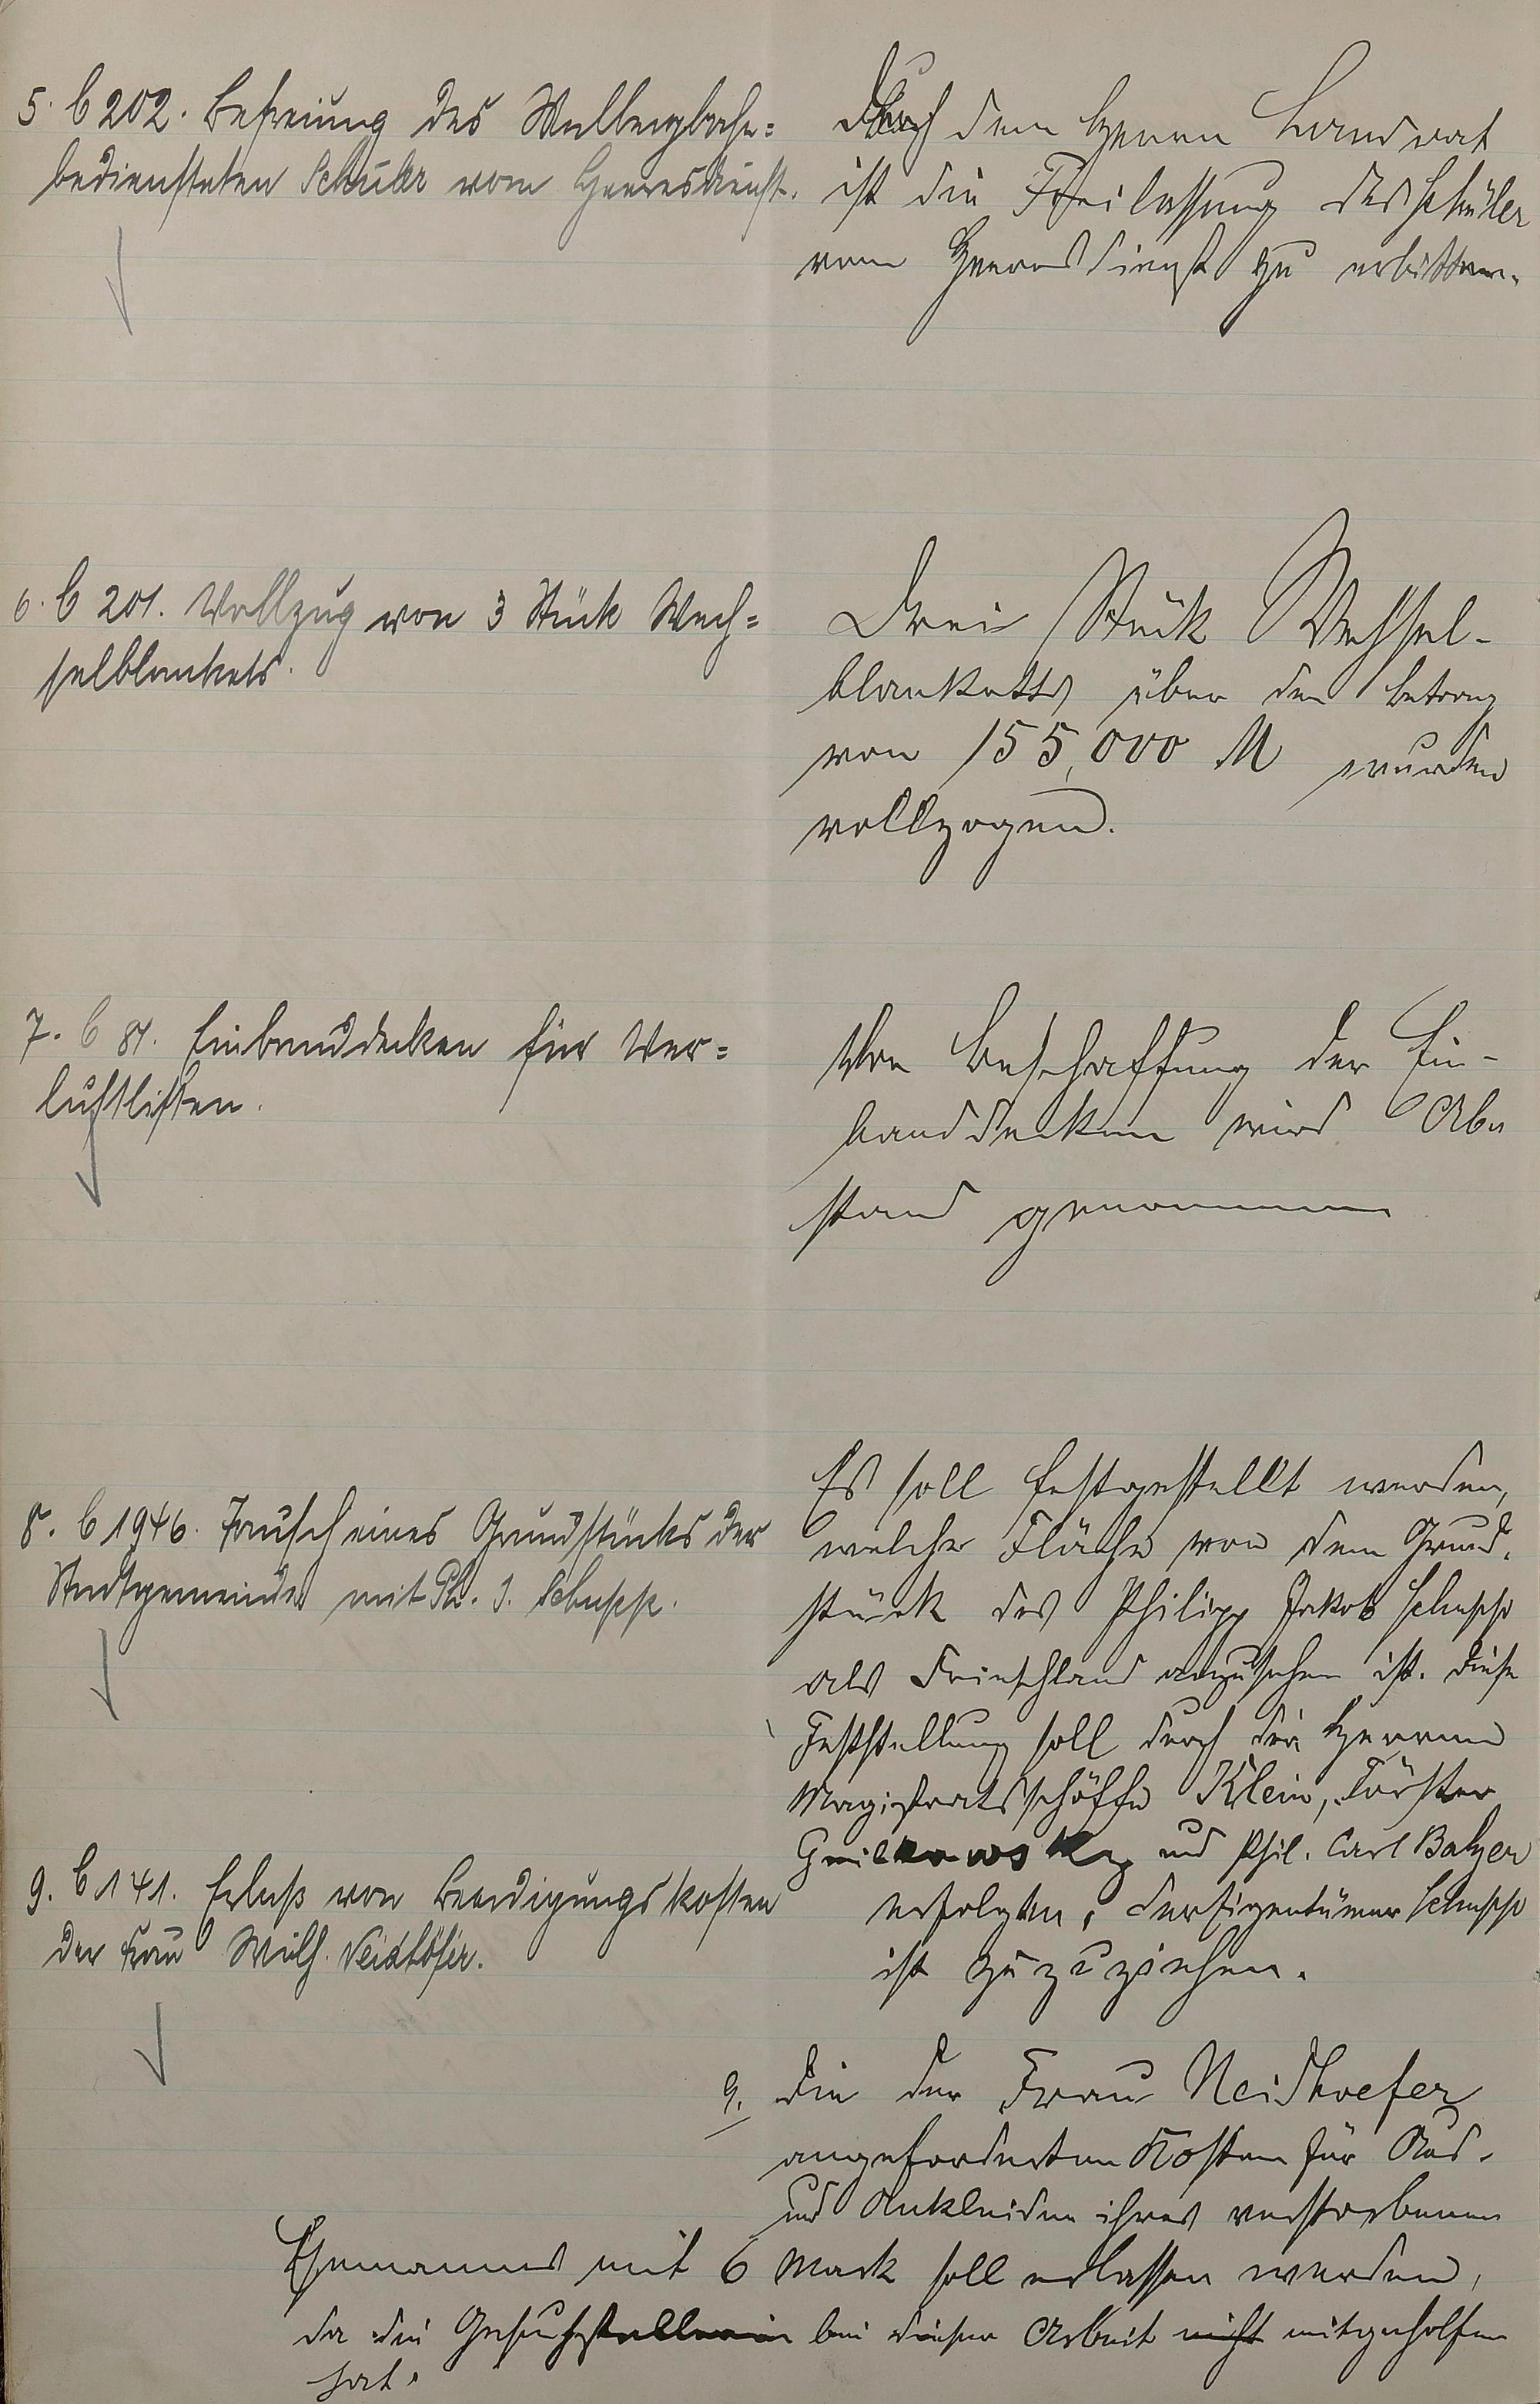 5. C 202. Befreiung des Mallbergbahn=
bediensteten Schüler vom Heeresdienst.
Durch den Herrn Landrat
ist die Freilassung des Schüler
vom Heeresdienst zu erbitten.
6. C 201. Vollzug von 3 Stück Wech=
selblankets.
Drei Stück Wechsel-
blanketts über den Betrag
von 155,000 M wurden
vollzogen.
7. C 84. Einbanddecken für Ver=
lustlisten.
Von Beschaffung der Ein-
banddecken wird Ab-
stand genommen
8. C 1946. Tausch eines Grundstücks der
Stadtgemeinde mit Ph. J. Schupp.
Es soll festgestellt werden,
welche Fläche von dem Grund-
stück des Philipp Jakob Schupp
als anzusehen ist. Diese
Feststellung soll durch die Herren
Magistratsschöffe Klein, Förster
und Phil. Carl Balzer
erfolgen, der Eigentümer Schupp
ist zuzuziehen.
9. C 141. Erlaß von Beerdigungskosten
der Frau Wilh. Neidhöfer.
9. Die der Frau Neidhoefer
angeforderten Kosten für Aus-
und Ankleiden ihres verstorbenen
Ehemannes mit 6 Mark soll erlassen werden,
da die Gesuchstellerin bei dieser Arbeit nicht mitgeholfen
hat.